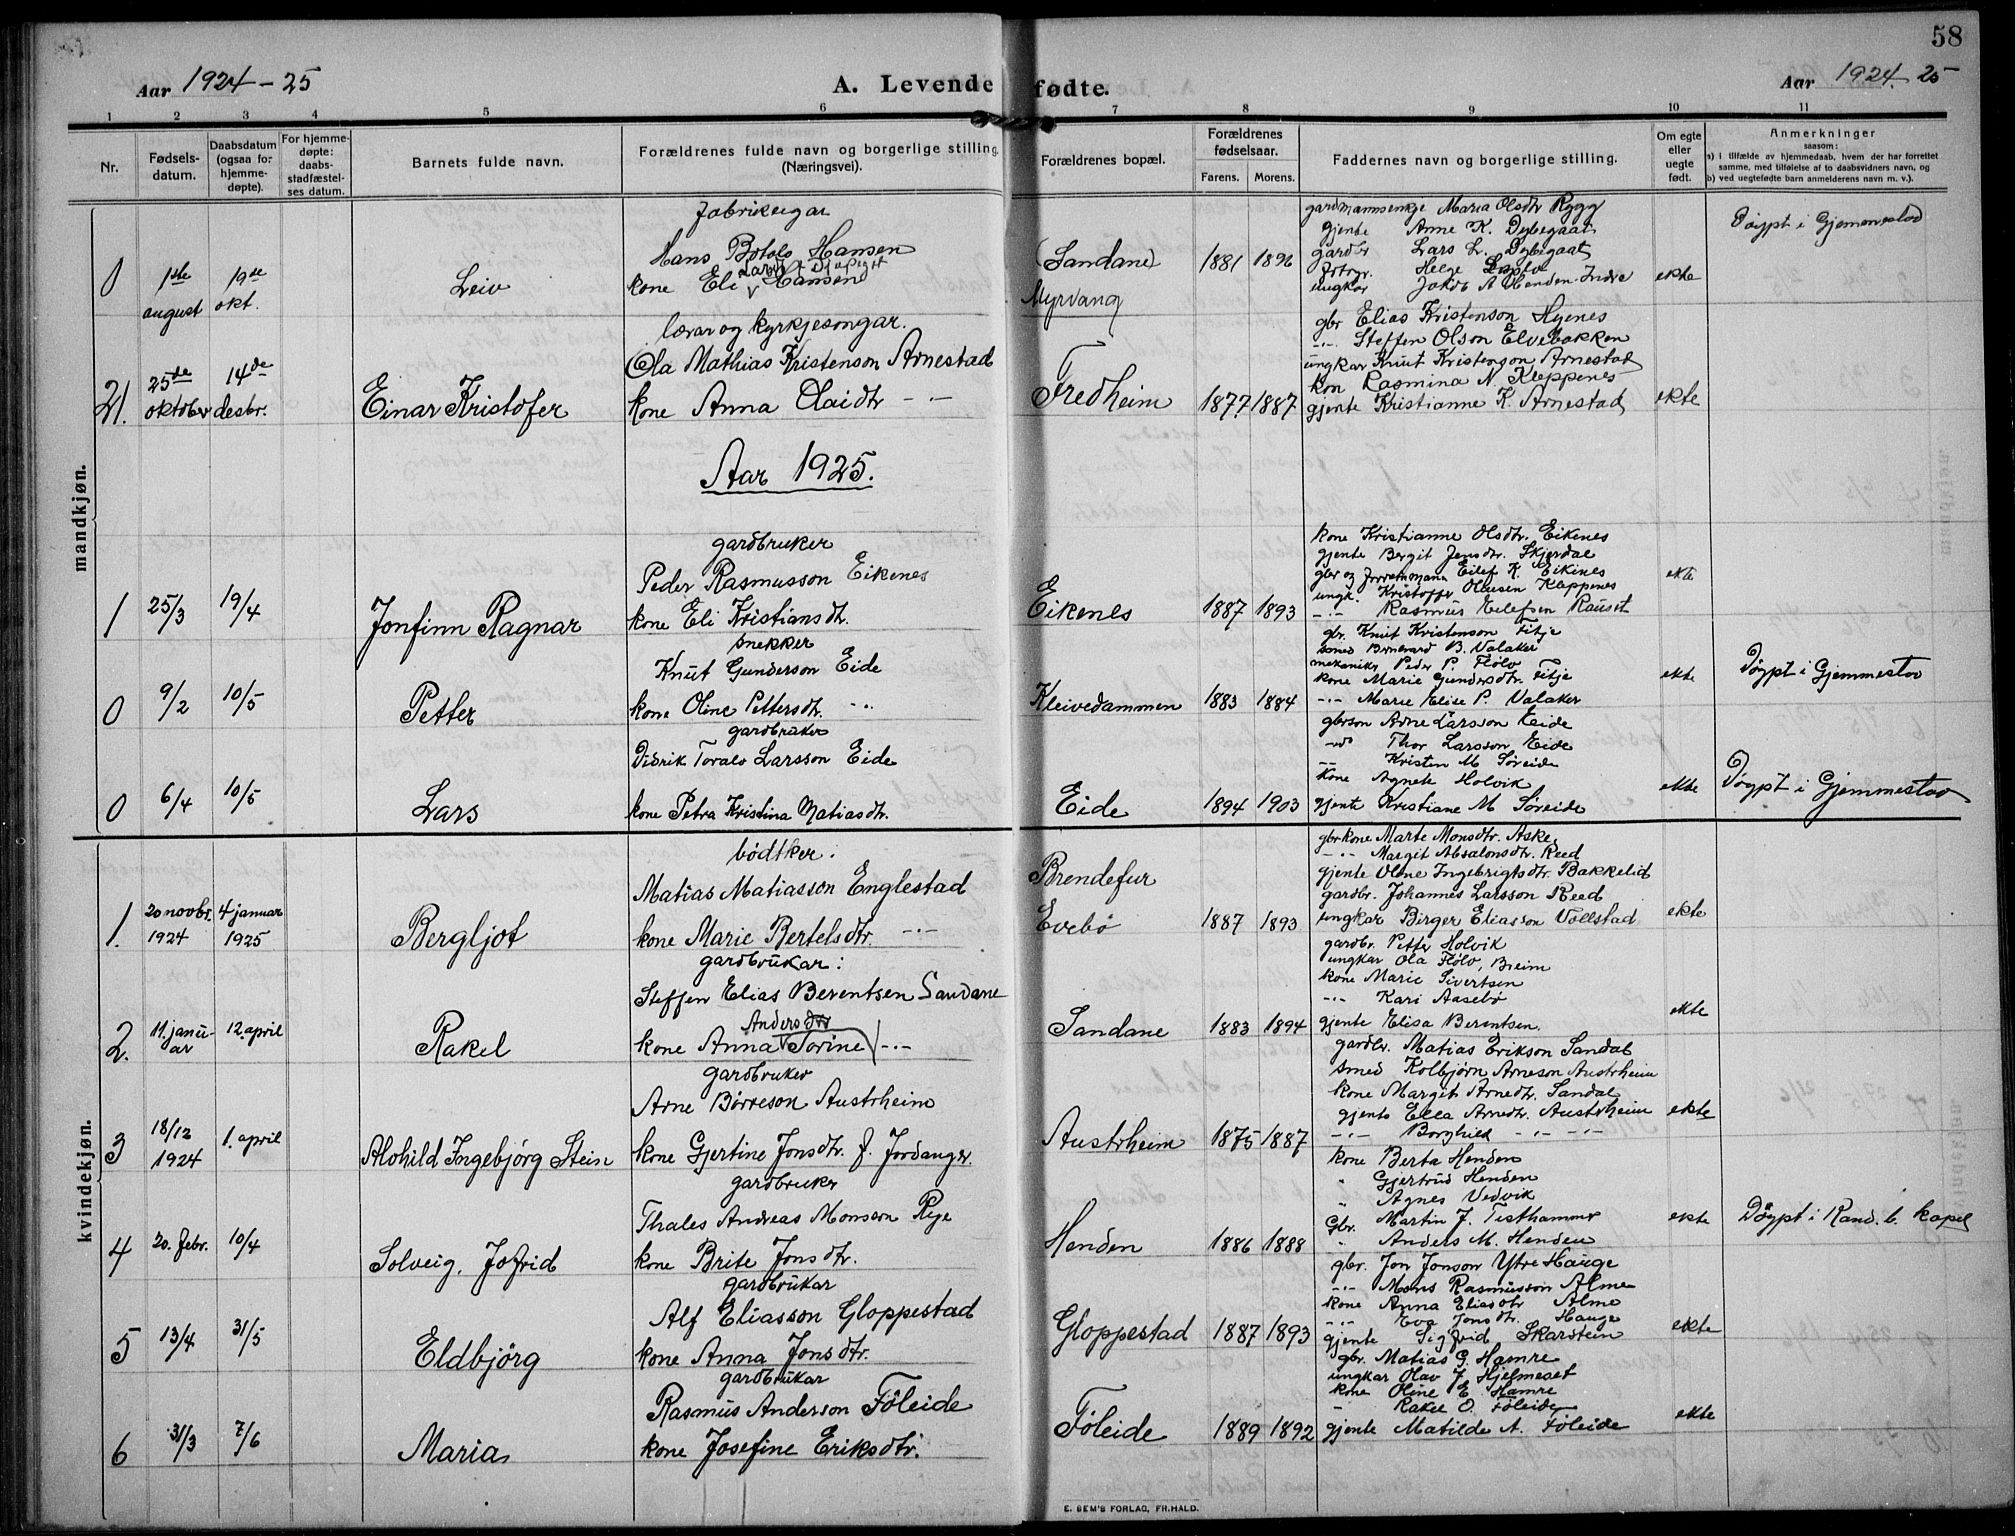 58
Aar 1924-25
A. Levende fødte.
Aar 1924. 25
1 2 3 4 5 6 7 8 9 10 11
Nr.
Fødsels-
datum.
Daabsdatum
(ogsaa for
hjemme-
døpte).
For hjemme-
døpte:
daabs-
stadfæstel-
ses datum.
Barnets fulde navn.
Forældrenes fulde navn og borgerlige stilling
(Næringsvei).
Forældrenes bopæl.
Forældrenes
fødselsaar.
Farens. Morens.
Faddernes navn og borgerlige stilling.
Om egte
eller
uegte
født.
Anmerkninger
saasom:
a) i tilfælde av hjemmedaab, hvem der har forrettet
samme, med tilføielse af to daabsvidners navn, og
b) ved uegtefødte barn anmelderens navn m. v.).
mandkjøn.
0
1ste
august
19de
okt.
Leiv
fabrikeigar
Hans Botolv Hansen
kone Eli Hansen
(Sandane)
Myrvang
1881 1896
gardmannsenkje Maria Olsdtr Rygg
gjente Anne K. Dybegaat
gardbr Lars L. Dybegaat
ungkar Jakob A Henden-Indre
ekte
Døypt i Gjemmestad
21.
25de
oktober
14de
desbr.
Einar Kristofer
lærar og kyrkjesongar.
Ola Mathias Kristenson Arnestad
kone Anna Olaidtr -"-
Fredheim
1877. 1887
gbr Elias Kristenson Hyenes
-"- Steffen Olson Elvebakken
ungkar Knut Kristenson Arnestad
kon Rasmina N. Kleppenes
gjente Kristianne K. Arnestad
ekte
Aar 1925.
1
25/3
19/4
Jonfinn Ragnar
gardbruker
Peder Rasmusson Eikenes
kone Eli Kristiansdtr.
Eikenes
1887 1893
kone Kristianne Olsdtr. Eikenes
gjente Bergit Jensdtr. Skjerdal
gbr og Eilef K. Eikenes
ungk. Kristoffer Olausen Kleppenes
-"- Rasmus Eilefsen Rauset
ekte
0
9/2
10/5
Petter
snekker
Knut Gunderson Eide
kone Oline Pettersdtr. -"-
Kleivedammen
1883 1884
gbr. Knut Kristenson Fitje
smed Bernhard B. Valaker
mekanikr Peder P. Flølo
kone Marie Gundersdtr. Fitje
-"- Marie Elise P. Valaker
ekte
Døypt i Gjemmestad
0
6/4
10/5
Lars
gardbruker
Didrik Toralv Larsson Eide
kone Petra Kristina Matiasdtr.
Eide
1894 1903
gbrson Arne Larsson Eide
-"- Thor Larsson Eide
-"- Kristen M Søreide
kone Agnete Holvik
gjente Kristiane M Søreide
ekte
Døypt i Gjemmestad
kvindekjøn.
1.
20 novbr.
1924
4 januar
1925
Bergljot
bødtker.
Matias Matiasson Englestad
kone Marie Bertelsdtr. -"-
Brendefur
Evebø
1887 1893
gbrkone Marte Monsdtr. Aske
-"- Margit Absalonsdtr. Reed
gjente Oline Ingebrigtsdtr. Bakkelid
gardbr. Johannes Larsson Reed
ungkar Birger Eliasson Vollstad
ekte
2.
11. janu-
ar
12. april
Rakel
gardbrukar:
Steffen Elias Berentsen Sandane
Andersdtr
kone Anna Sorine -"-
Sandane
1883 1894
gardbr. Petter Holvik
ungkar Ola Flølo, Breim
kone Marie Sivertsen
-"- Kari Aasebø
gjente Elisa Berentsen.
ekte
3
18/12
1924
1. april
Alvhild Ingebjørg Stein
gardbruker
Arne Børreson Austrheim
kone Gjertine Jonsdtr. f. Jordanger.
Austrheim
1875 1887
gardbr. Matias Erikson Sandal
smed Kolbjørn Arneson Austrheim
kone Margit Arnedtr. Sandal
gjente Ella Arnedtr. Austrheim
-"- Borghild -"- -"-
ekte
4
20. febr.
10/4
Solveig. Jofrid
gardbruker
Thales Andreas Monsson Rye
kone Brite Jonsdtr.
Henden
1886 1888
kone Berta Henden
" Gjertrud Henden
" Agnes Vedvik
Gbr. Martin J. Tisthammer
" Anders M. Henden
ekte
Døypt i Rand. b. kapel
5
13/4
31/5
Eldbjørg
gardbrukar
Alf Eliasson Gloppestad
kone Anna Jonsdtr.
Gloppestad
1887 1893
gbr. Jon Jonson Ytre Hauge
-"- Mons Rasmusson Alme
kone Anna Eliasdtr Alme
-"- Eva Jonsdtr. Hauge
gjente Sigfrid Skarstein
ekte
6
31/3
7/6
Maria
gardbrukar
Rasmus Anderson Føleide
kone Josefine Eriksdtr.
Føleide
1889 1892
gbr. Matias G. Hamre
ungkar Olav J. Hjelmeset
kone Oline E. Hamre
" Rakel O. Føleide
gjente Matilde A. Føleide
ekte
E. SEM'S FORLAG, FR.HALD.